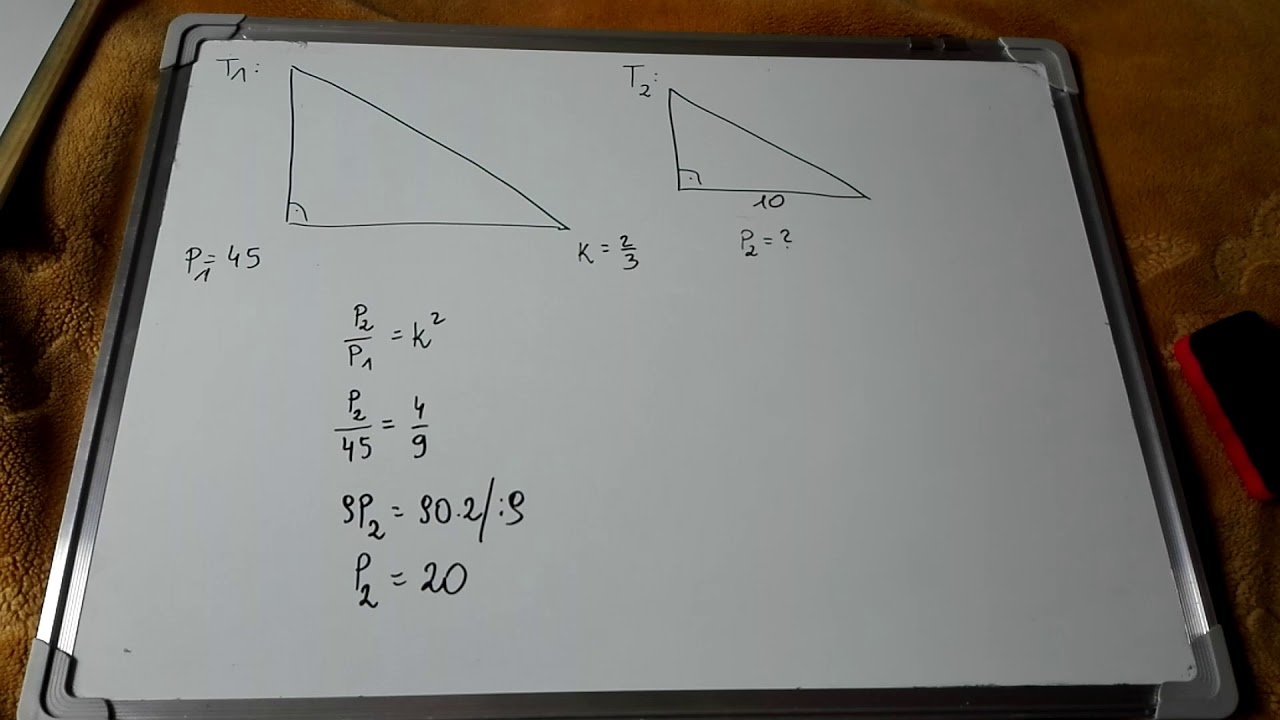 T₁:
T₂:
10
P₁ = 45
K = 2/3
P₂ = ?
P₂/P₁ = k²
P₂/45 = 4/9
9P₂ = 90·2 /:9
P₂ = 20